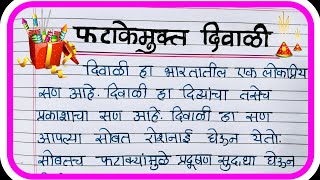 फटाकेमुक्त दिवाळी
दिवाळी हा भारतातील एक लोकप्रिय
सण आहे. दिवाळी हा दिव्यांचा तसेच
प्रकाशाचा सण आहे. दिवाळी हा सण
आपल्या सोबत रोशनाई घेऊन येतो.
सोबतच फटाक्यांमुळे प्रदूषण सुद्धा घेऊन